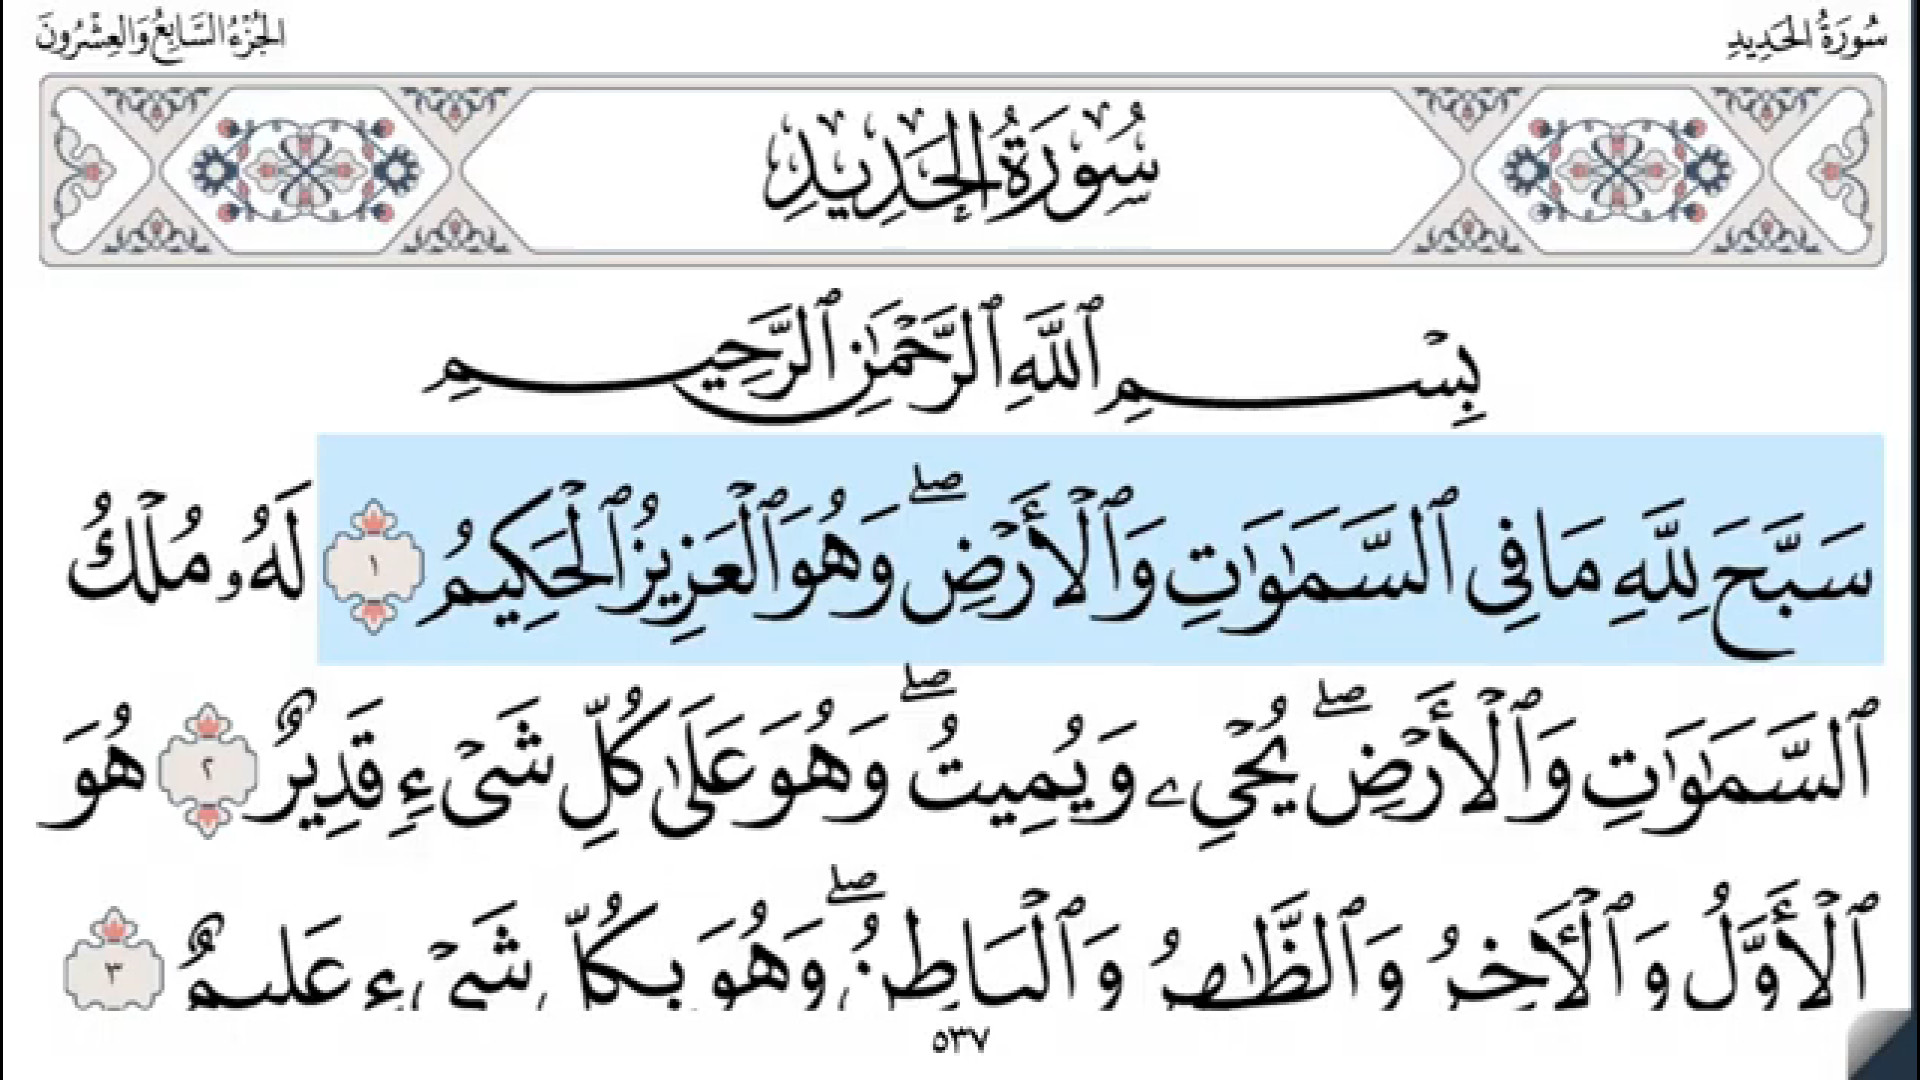 سُورَةُ الحَدِيدِ
الجُزْءُ السَّابِعُ وَالعِشْرُونَ
سُورَةُ الحَدِيدِ
بِسْمِ ٱللَّهِ ٱلرَّحْمَٰنِ ٱلرَّحِيمِ
سَبَّحَ لِلَّهِ مَا فِي ٱلسَّمَٰوَٰتِ وَٱلْأَرْضِۖ وَهُوَ ٱلْعَزِيزُ ٱلْحَكِيمُ ١ لَهُۥ مُلْكُ
ٱلسَّمَٰوَٰتِ وَٱلْأَرْضِۖ يُحْيِۦ وَيُمِيتُۖ وَهُوَ عَلَىٰ كُلِّ شَيْءٍ قَدِيرٌ ٢ هُوَ
ٱلْأَوَّلُ وَٱلْأٓخِرُ وَٱلظَّٰهِرُ وَٱلْبَاطِنُۖ وَهُوَ بِكُلِّ شَيْءٍ عَلِيمٌ ٣
٥٣٧